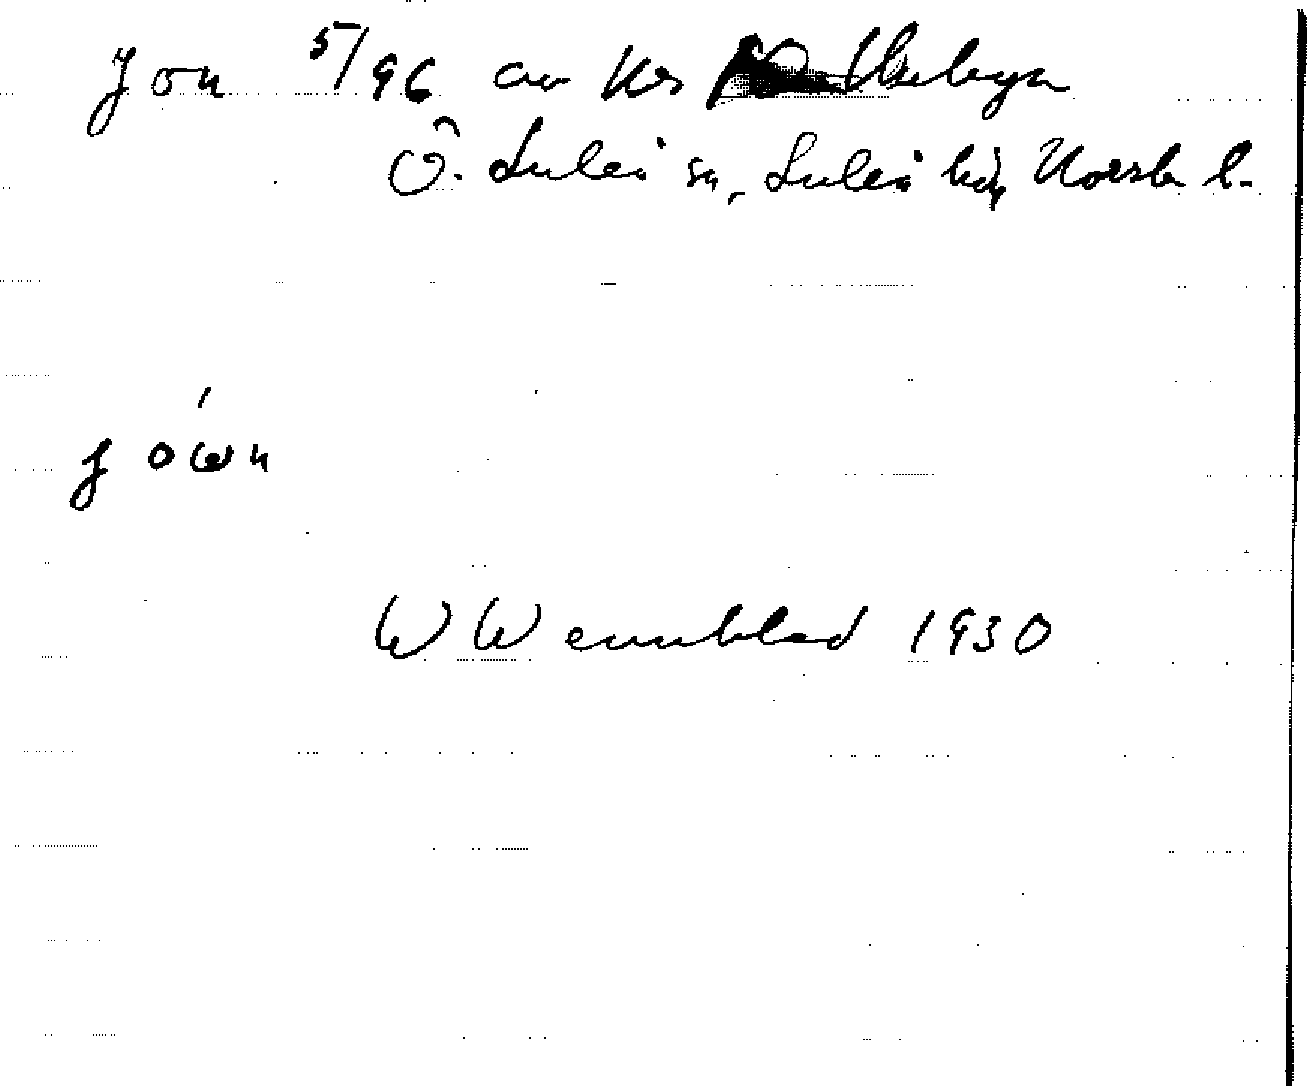 Jon 5/96 av Ers
Ö. Luleå sn, Luleå tg, Norrb l.
jówn
W Wennblad 1930